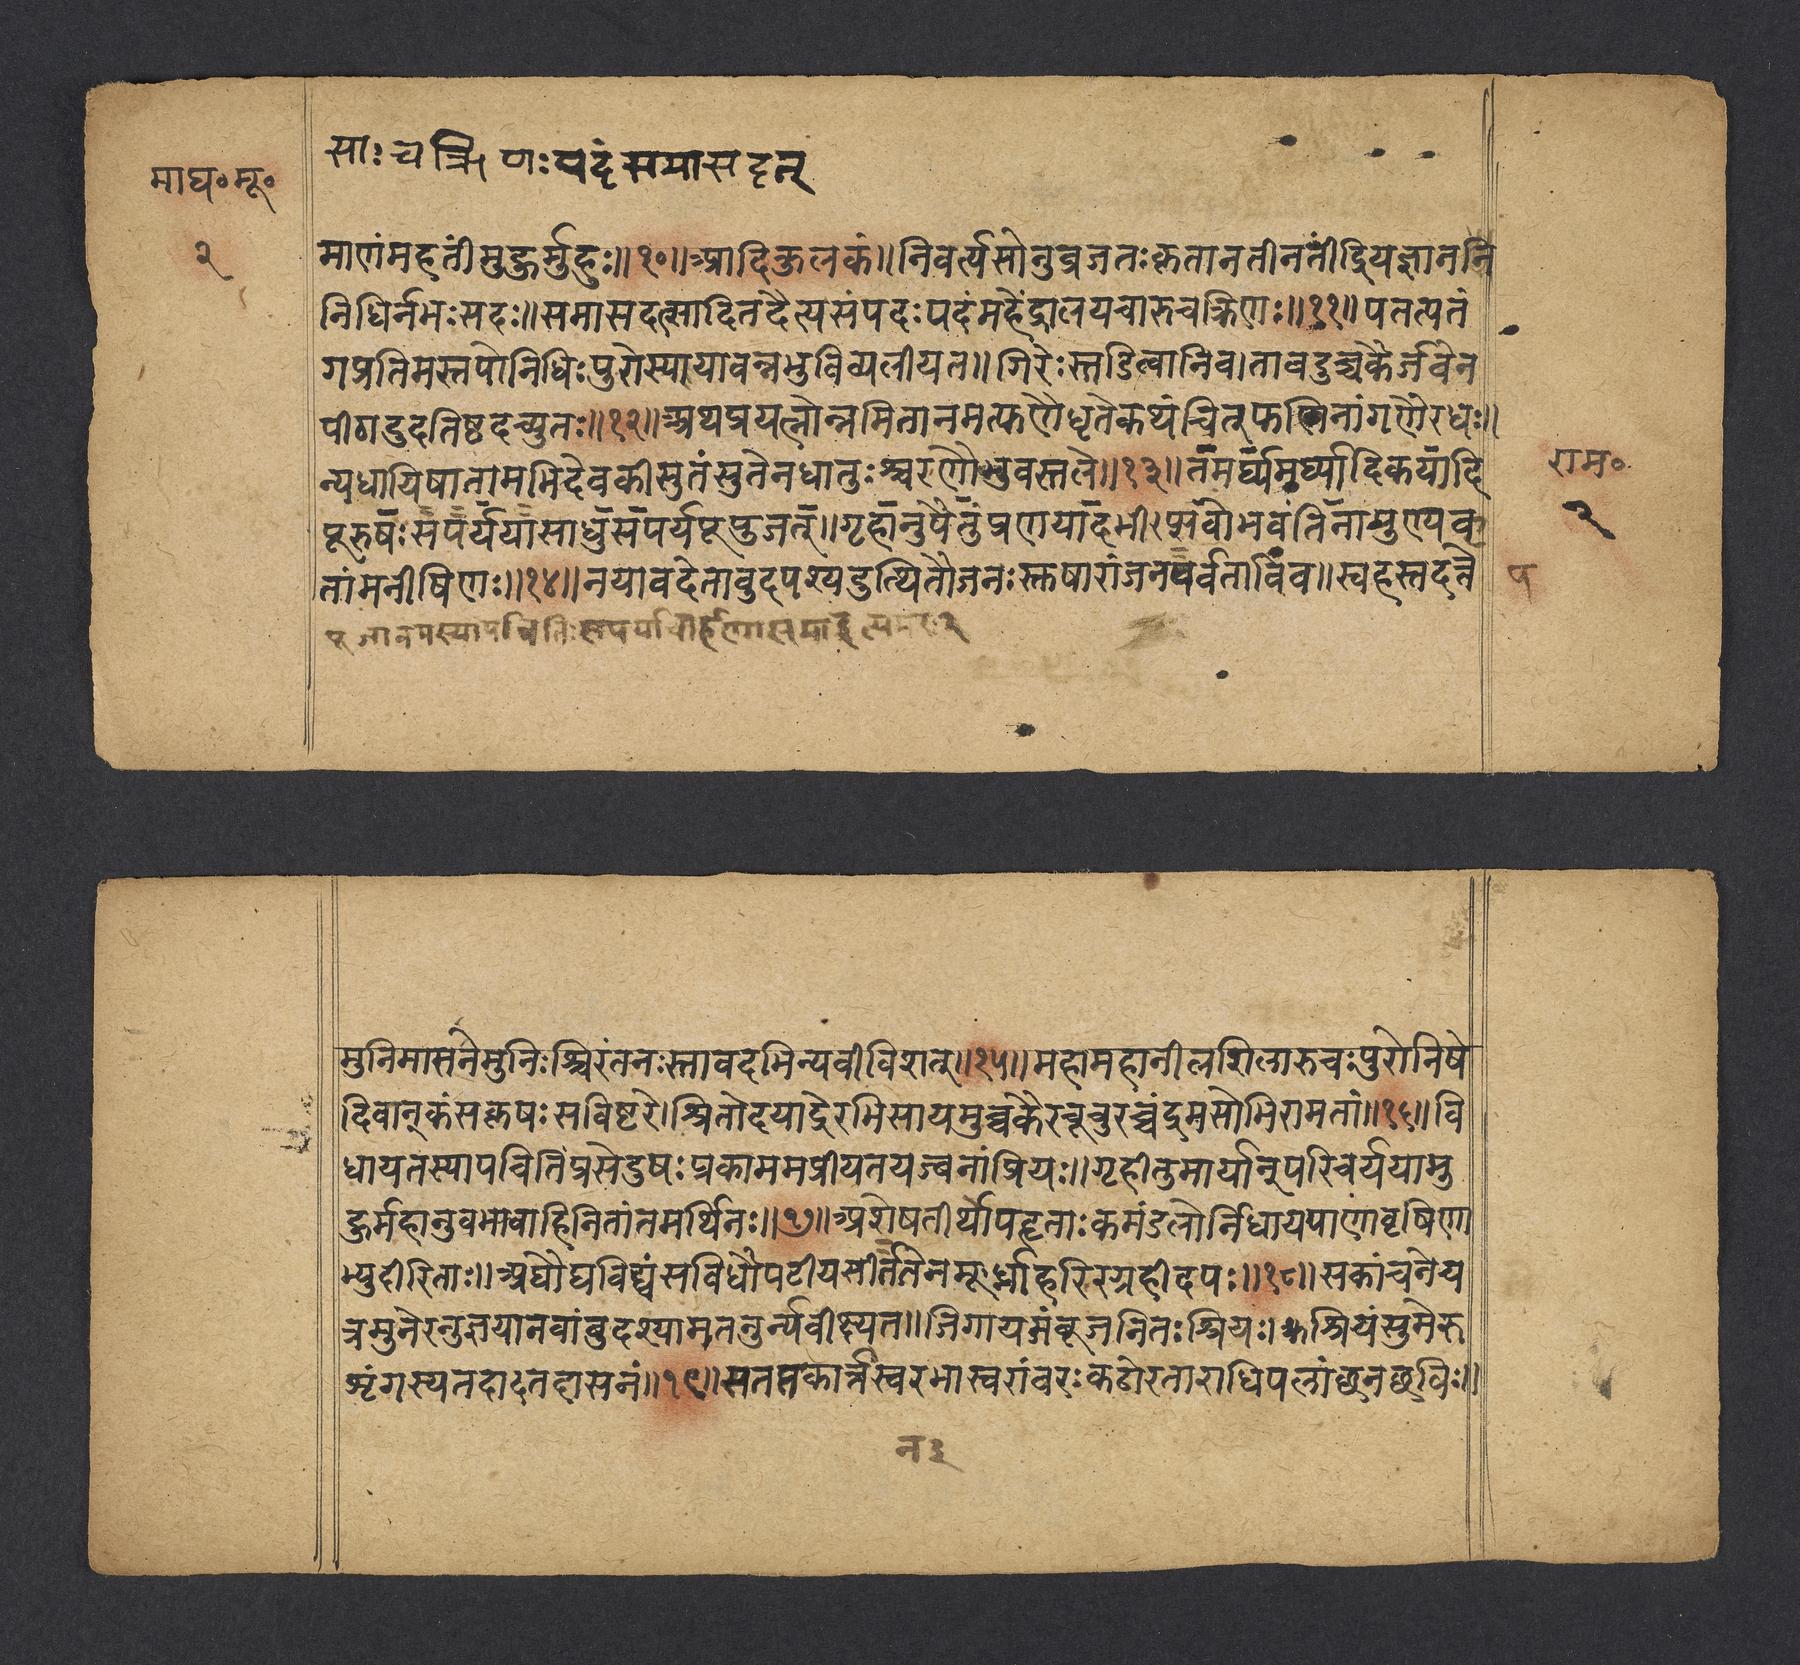 साः चक्रि णः पदं समासदत्
माघ॰ मू॰
२
माणंमहतींमुहुर्मुहुः॥१०॥आदिकुलकं॥निवर्त्यसोनुव्रजतःकृतानतीनतींद्रियज्ञाननि
निधिर्नभःसदः॥समासदत्सादितदैत्यसंपदःपदंमहेंद्रालयचारुचक्रिणः॥११॥पतत्पतं
गप्रतिमस्तपोनिधिःपुरोस्यायावन्नभुविव्यलीयत॥गिरेःस्तडित्वानिव।तावदुच्चकैर्जवेन
पीठादुदतिष्ठदच्युतः॥१२॥अथप्रयत्नोन्नमितानमत्फणैधृतेकथंचित्फणिनांगणैरधः॥
न्यधायिषातामभिदेवकीसुतंसुतेनधातुःश्चरणौभुवस्तले॥१३॥तमर्घ्यमर्घ्यादिकयादि
राम॰
२
पूरुषःसपर्ययासाधुसपर्यपूपुजत्॥गृहानुपैतुंप्रणयादभीप्सवोभवंतिनापुण्यकृ
तांमनीषिणः॥१४॥नयावदेतावुदपश्यदुत्थितौजनःस्तुषारांजनपर्वताविव॥स्वहस्तदत्ते
प
मुनिमासनेमुनिःश्चिरंतनःस्तावदभिन्यवीविशत्॥१५॥महामहानीलशिलारुचःपुरोनिषे
दिवान्कंसकृषःसविष्टरे।श्रितोदयाद्रेरभिसायमुच्चकैरचूचुरच्चंद्रमसोभिरामतां॥१६॥वि
धायतस्यापचितिंप्रसेदुषःप्रकाममप्रीयतयज्वनांप्रियः॥गृहीतुमार्यान्परिचर्ययामु
हुर्महानुवभावाहिनितांतमर्थिनः॥१७॥अशेषतीर्थोपहृताःकमंडलोर्निधायपाणावृषिणा
भ्युदीरिताः॥अघौघविध्वंसविधौपटीयसीर्नतेनमूर्ध्नाहरिरग्रहीदपः॥१८॥सकांचनेय
त्रमुनेरनुज्ञयानवांबुदश्यामतनुर्न्यवीक्ष्यत॥जिगायजंबूजनितःश्रियः।श्रियंसुमेरु
शृंगस्यतदादतदासनं॥१९॥सतप्तकार्त्तस्वरभास्वरांबरःकठोरताराधिपलांछनछविः॥
न३